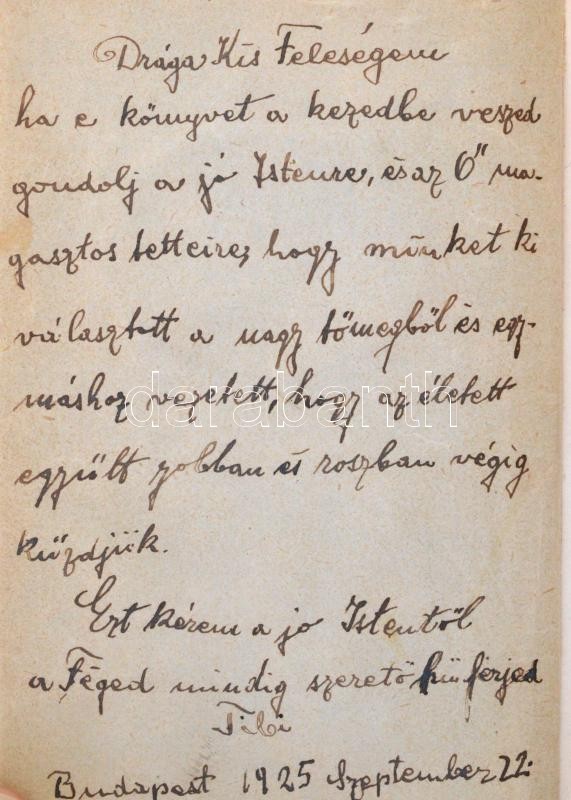 Drága Kis Feleségem
ha e könyvet a kezedbe veszed
gondolj a jó Istenre, és az Ő ma-
gasztos tetteire, hogy münket ki
választott a nagy tömegből és egy-
máshoz vezetett, hogy az életett
együtt jobban és roszban végig
küzdjük.
Ezt kérem a jo Istentől
a Téged mindig szerető hű férjed
Tibi
Budapest 1925 Szeptember 22.
darabanth